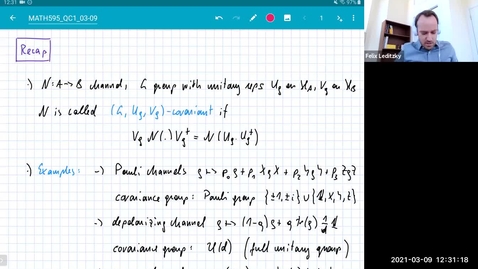 12:31
75%
MATH595_QC1_03-09
Recap
·) N: A→B channel, G group with unitary reps U_g on H_A, V_g on H_B
N is called (G, U_g, V_g)-covariant if
V_g N(.) V_g† = N(U_g · U_g†)
·) Examples: -) Pauli channels ρ ↦ p₀ρ + p₁ XρX + p₂ YρY + p₃ ZρZ
covariance group: Pauli group {±1, ±i} ∪ {𝟙, X, Y, Z}
-) depolarizing channel ρ ↦ (1-q)ρ + q Tr(ρ) 1/d 𝟙
covariance group: U(d) (full unitary group)
Felix Leditzky
2021-03-09 12:31:18